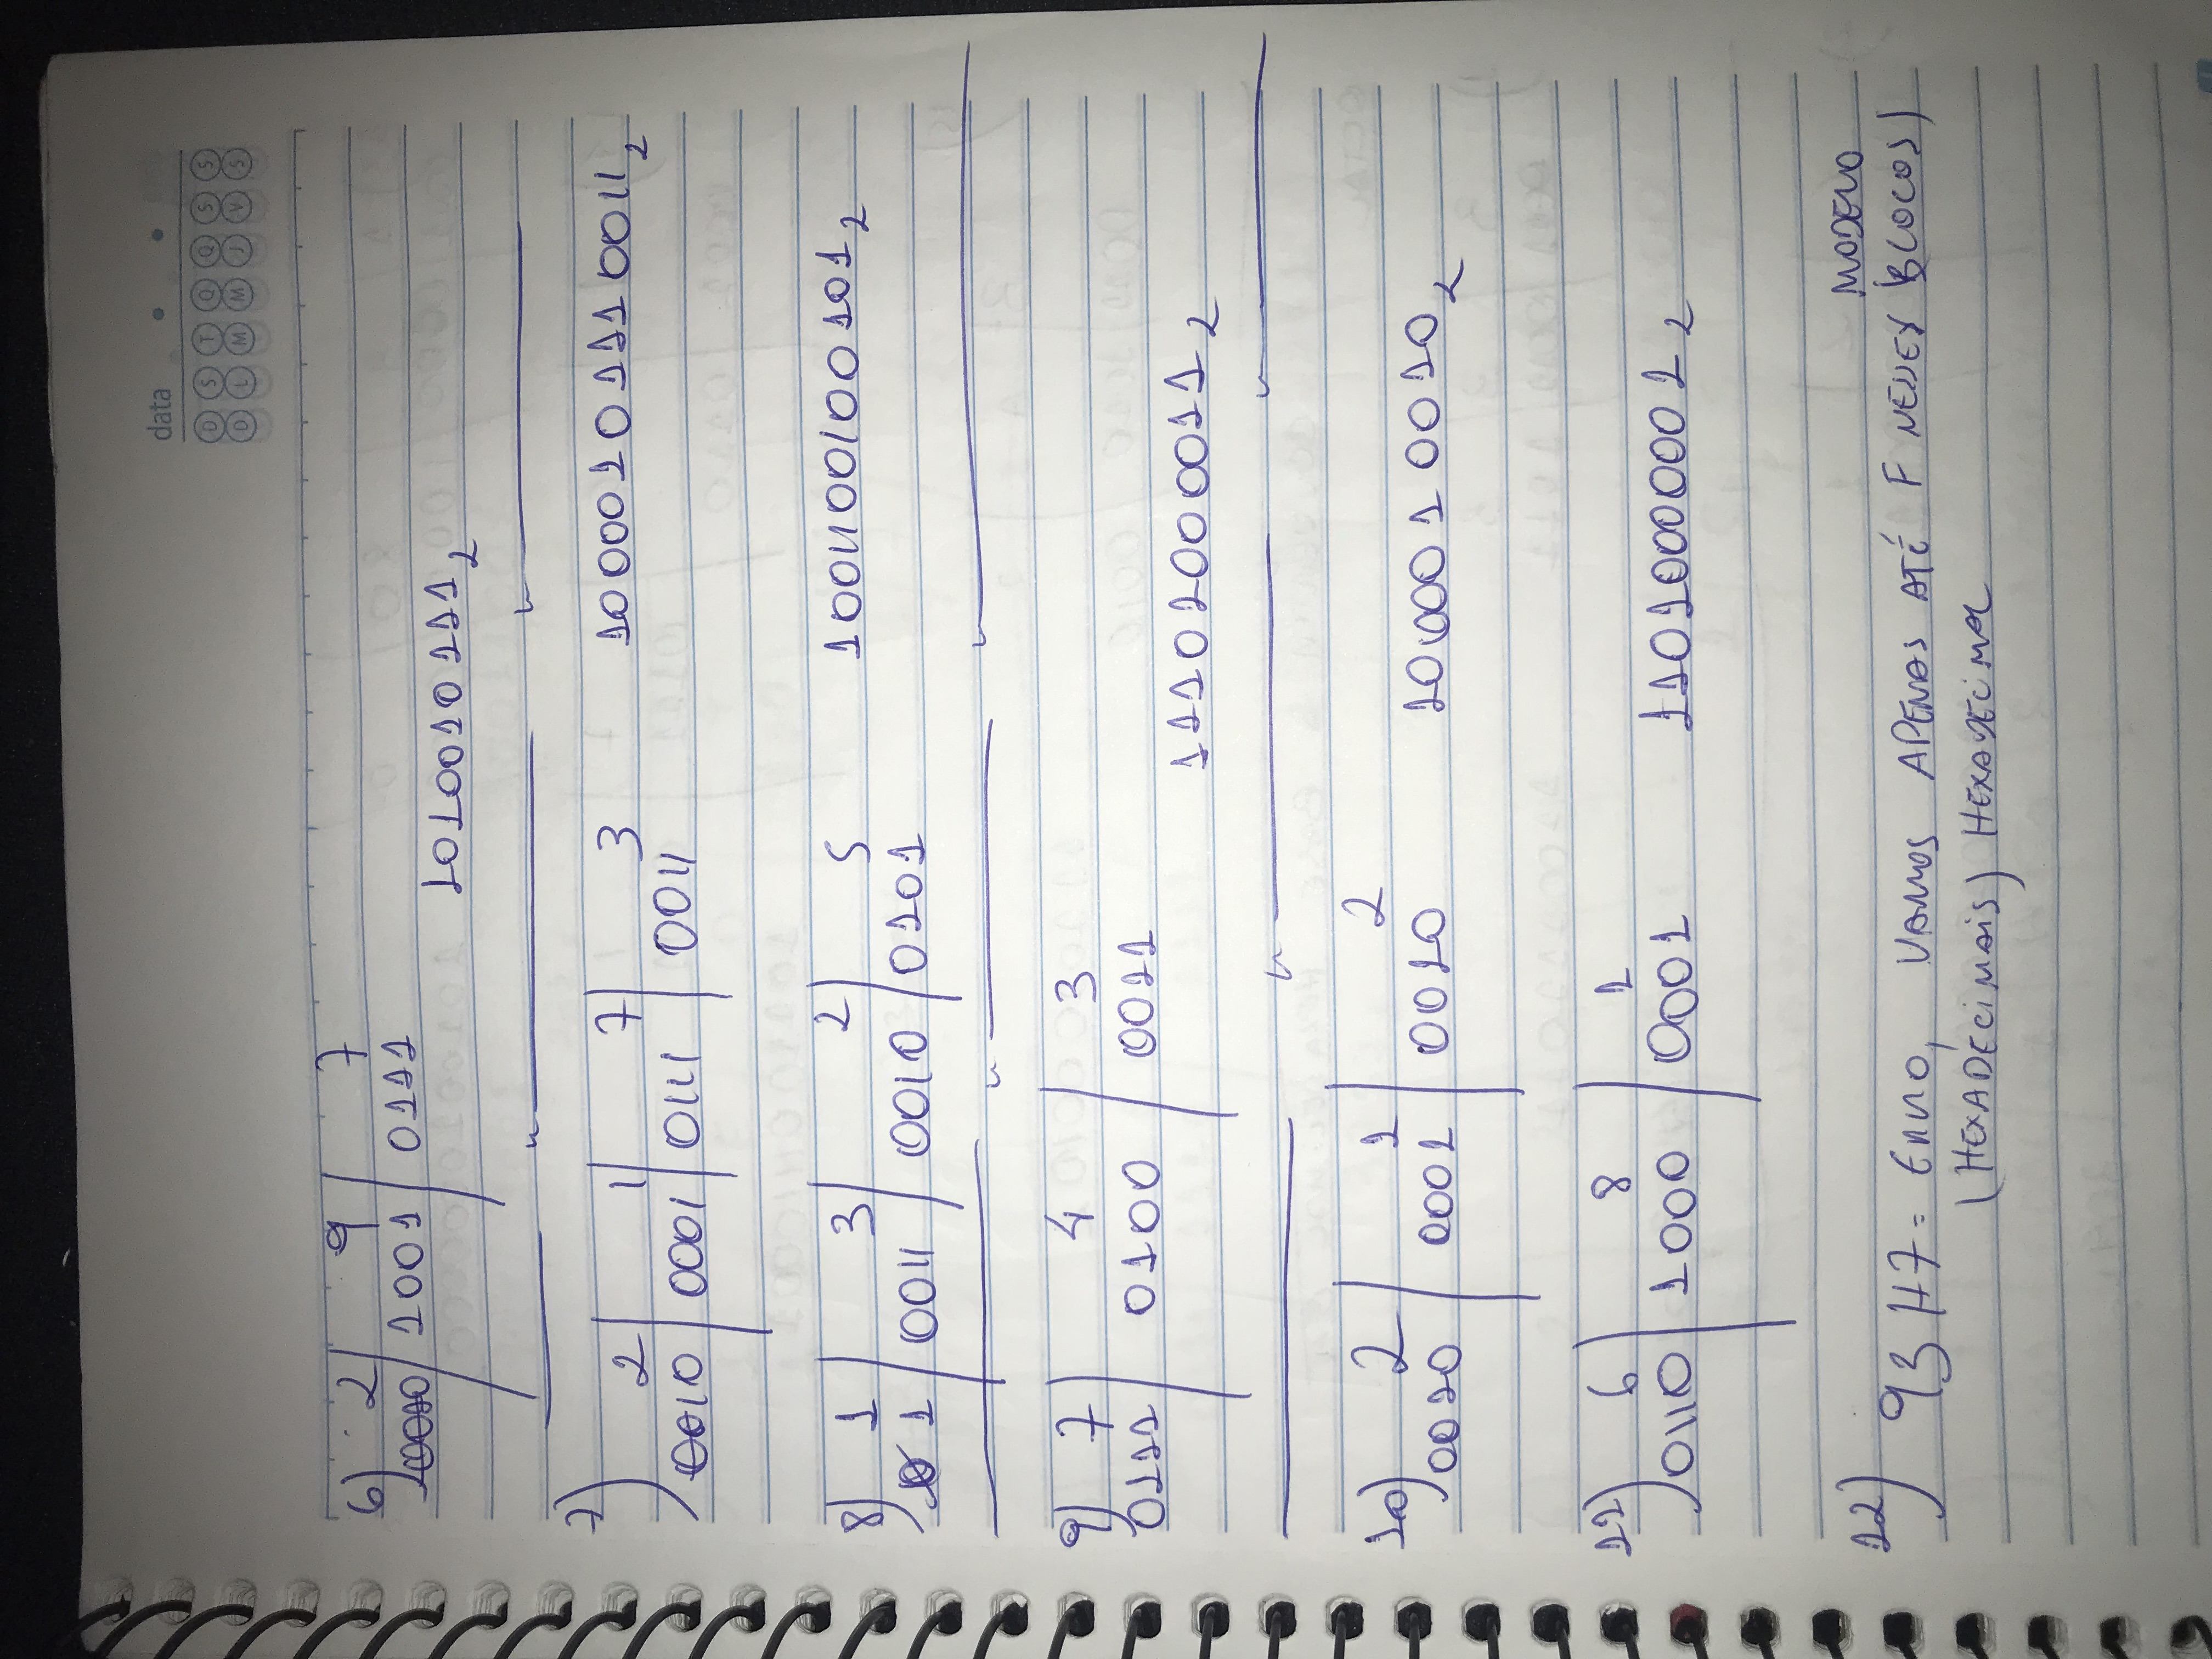 data
D S T Q Q S S
D L M M J V S
6) 2 9 7
0010 1001 0111
1010010111₂
7)
2 1 7 3 10000101110011₂
0010 0001 0111 0011
8) 1 3 2 5 1001100100101₂
0 1 0011 0010 0101
9) 7 4 3
0111 0100 0011
11101000011₂
10) 2 1 2
0010 0001 0010 1000010010₂
11) 6 8 1
0110 1000 0001 11010000001₂
MODELO
12) 93H7 = ERRO, VAMOS APENAS ATÉ F NESSES (BLOCOS)
(HEXADECIMAIS) HEXADECIMAL